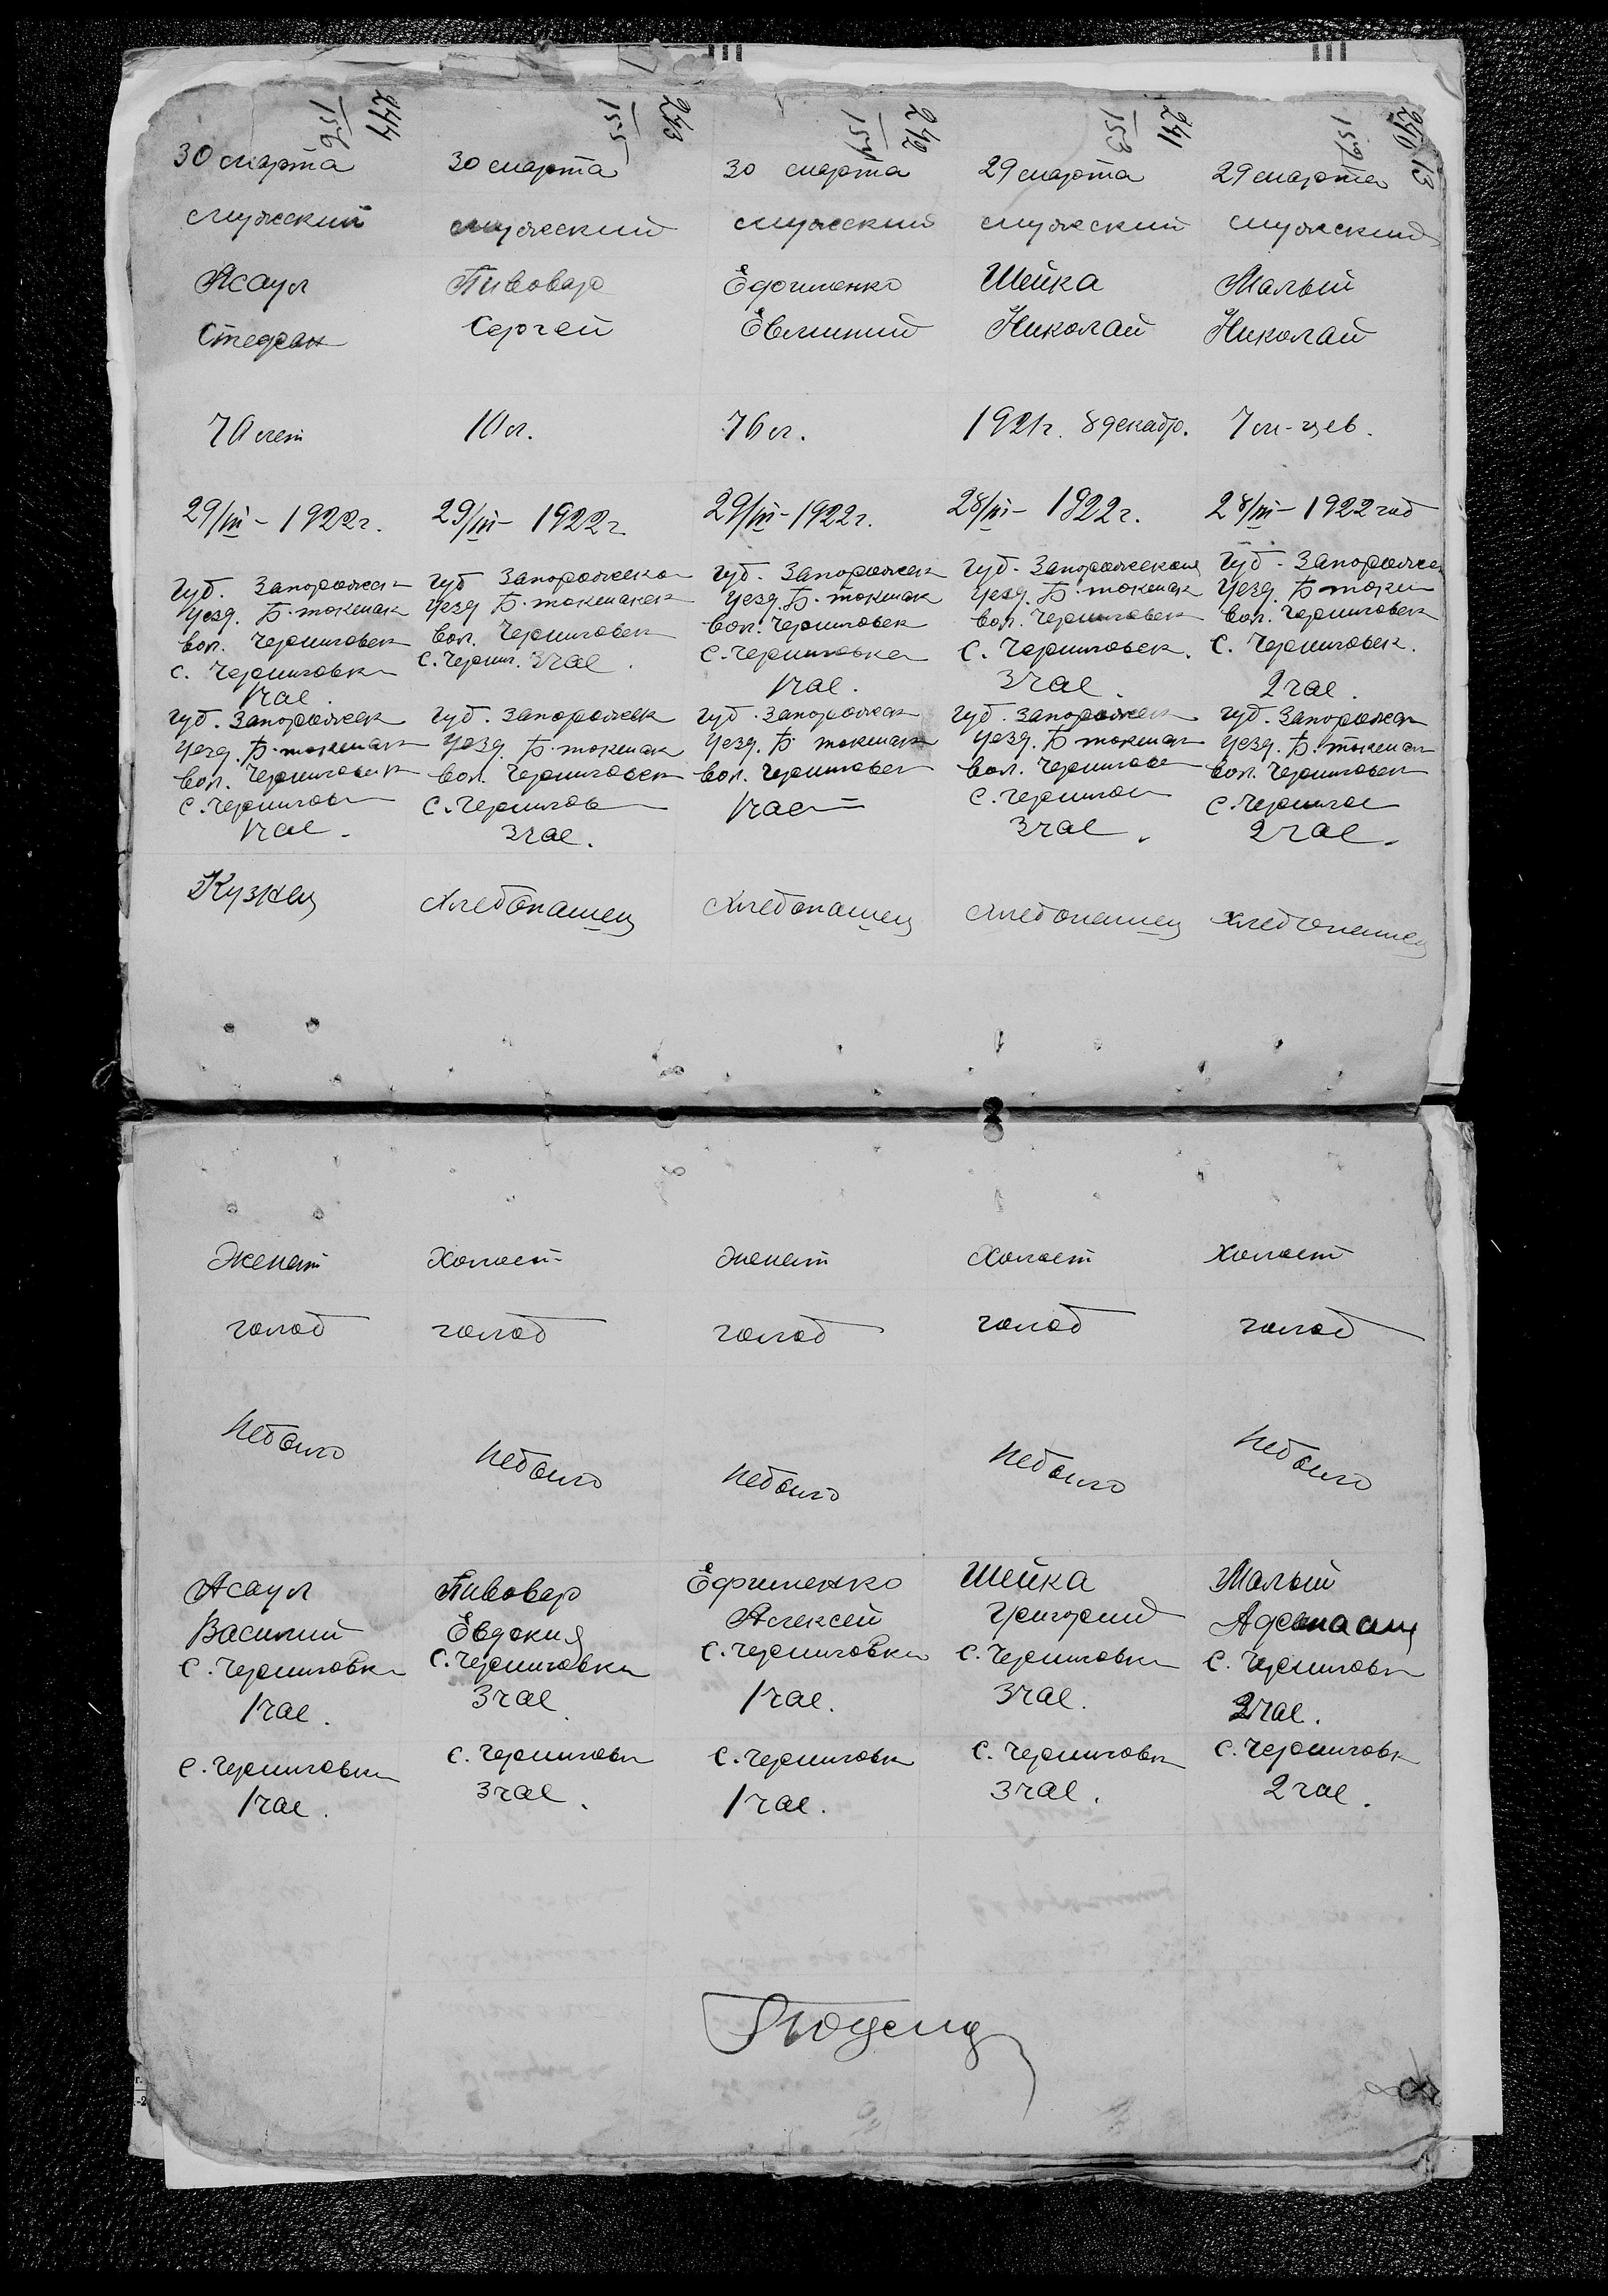 244 243 242 241 240 13
156 155 154 153 159
30 марта 30 марта 30 марта 29 марта 29 марта
мужский мужеский мужеский мужеский мужеский
Асаул Пивовар Ефименко Шейка Малый
Стефан Сергей Евмений Николай Николай
70 лет 10 л. 76 л. 1921 г. 8 декабр. 7 м-цев.
29/III - 1922 г. 29/III - 1922 г 29/III - 1922 г. 28/III - 1922 г. 28/III - 1922 год
Губ. Запорожск Губ Запорожско Губ. Запорожск Губ. Запорожской Губ. Запорожск
Уезд. Б. токмак Уезд Б. токмакск Уезд. Б. токмак Уезд. Б. токмак Уезд. Б токм
Вол. Черниговск Вол. Черниговск Вол. Черниговск Вол. Черниговск Вол. Черниговск
С. Черниговки С. Черниг. 3 час. С. Черниговка С. Черниговск. С. Черниговск.
1 час. 1 час. 3 час. 2 час.
Губ. Запорожск Губ. Запорожск Губ. Запорожск Губ. Запорожск Губ. Запорожск
Уезд. Б. токмак Уезд. Б. токмак Уезд. Б. токмак Уезд. Б токмак Уезд. Б. токмак
Вол. Черниговск Вол. Черниговск Вол. Черниговск Вол. Чернигов Вол. Черниговск
С. Чернигов С. Чернигов 1 час С. Чернигов С. Чернигов
1 час. 3 час. 3 час. 2 час.
Кузнец Хлебопашец Хлебопашец Хлебопашец Хлебопашец
Женат Холост Женат Холост Холост
голод голод голод голод голод
Небыло Небыло Небыло Небыло Небыло
Асаул Пивовар Ефименко Шейка Малый
Василий Евдокия Алексей Григорий Афанасий
С. Черниговки С. Черниговки С. Черниговки С. Черниговки С. Черниговк
1 час. 3 час. 1 час. 3 час. 2 час.
С. Черниговки С. Черниговк С. Черниговк С. Черниговк С. Черниговк
1 час. 3 час. 1 час. 3 час. 2 час.